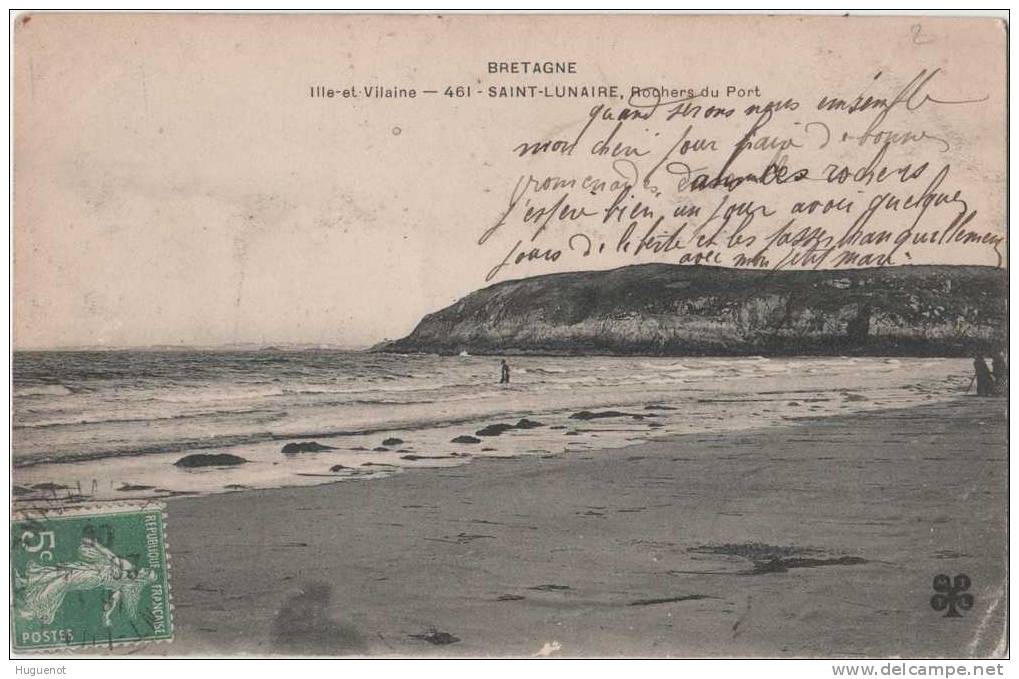 2
BRETAGNE
Ille-et-Vilaine — 461 - SAINT-LUNAIRE, Rochers du Port
quand serons nous ensemble
mon cheri pour faire de bonnes
promenades dans les rochers
j'espere bien un jour avoir quelques
jours de liberte et les passer tranquillement
avec mon petit mari.
REPUBLIQUE FRANÇAISE
5c
POSTES
Huguenot
http://www.delcampe.net